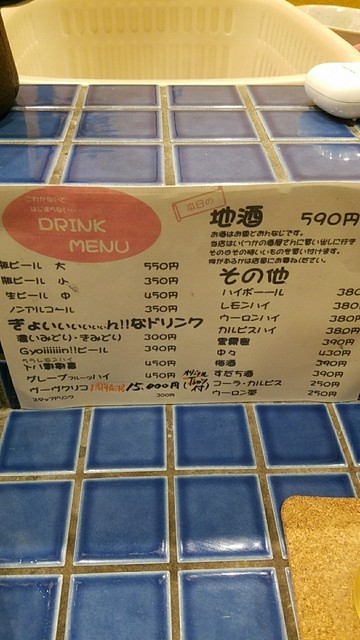 これがないと
はじまらない…
DRINK
MENU
瓶ビール 大 550円
瓶ビール 小 350円
生ビール 中 450円
ノンアルコール 350円
ぎょいいいいいん!!なドリンク
濃いみどり・きみどり 300円
Gyoiiiiiin!!ビール 390円
450円
グレープフルーツハイ 450円
ヴーヴクリコ 15,000円
スタッフドリンク 300円
本日の
地酒 590円
お酒はお米とおんなじです。
当店はいくつかの酒屋さんに買い出しに行き
そのときの細いいものを買い付けます。
何があるかは店主にお尋ねください。
その他
ハイボール 380
レモンハイ 380
ウーロンハイ 380
カルピスハイ 380円
390円
中々 430円
梅酒 390円
すだち酒 390円
コーラ・カルピス 250円
ウーロン茶 250円